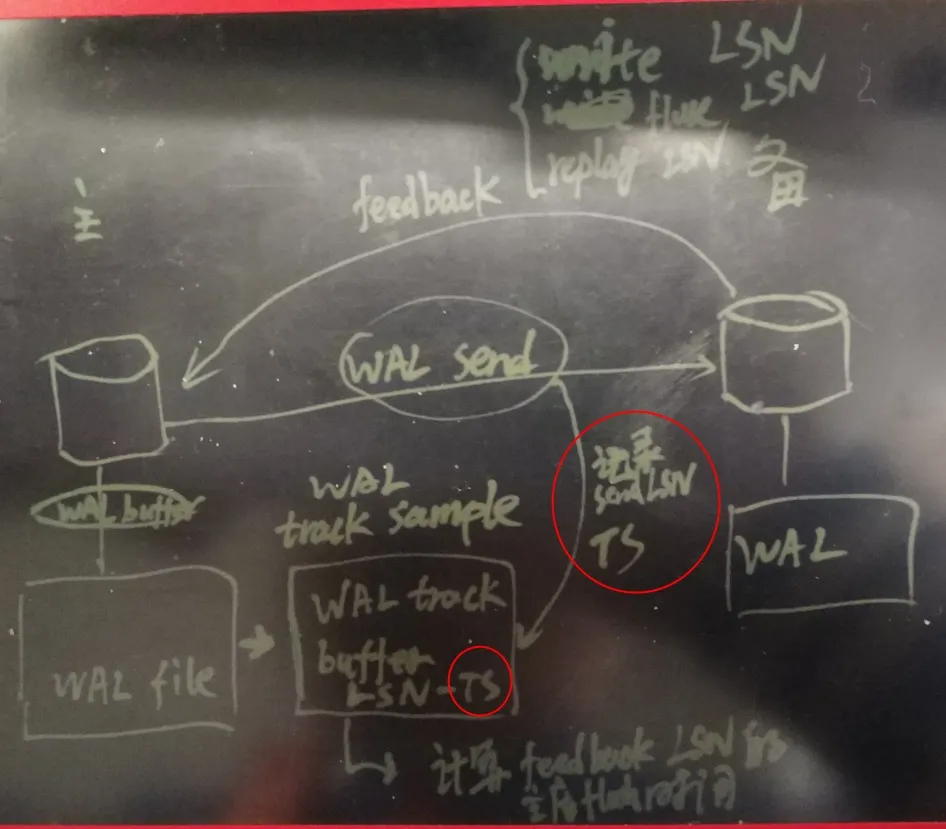 write LSN
flush LSN
replay LSN
备
feedback
主
WAL send
WAL buffer
WAL
track sample
记录
send LSN
TS
WAL
WAL track
buffer
LSN-TS
WAL file
计算 feedback LSN 的
主库 flush 时间